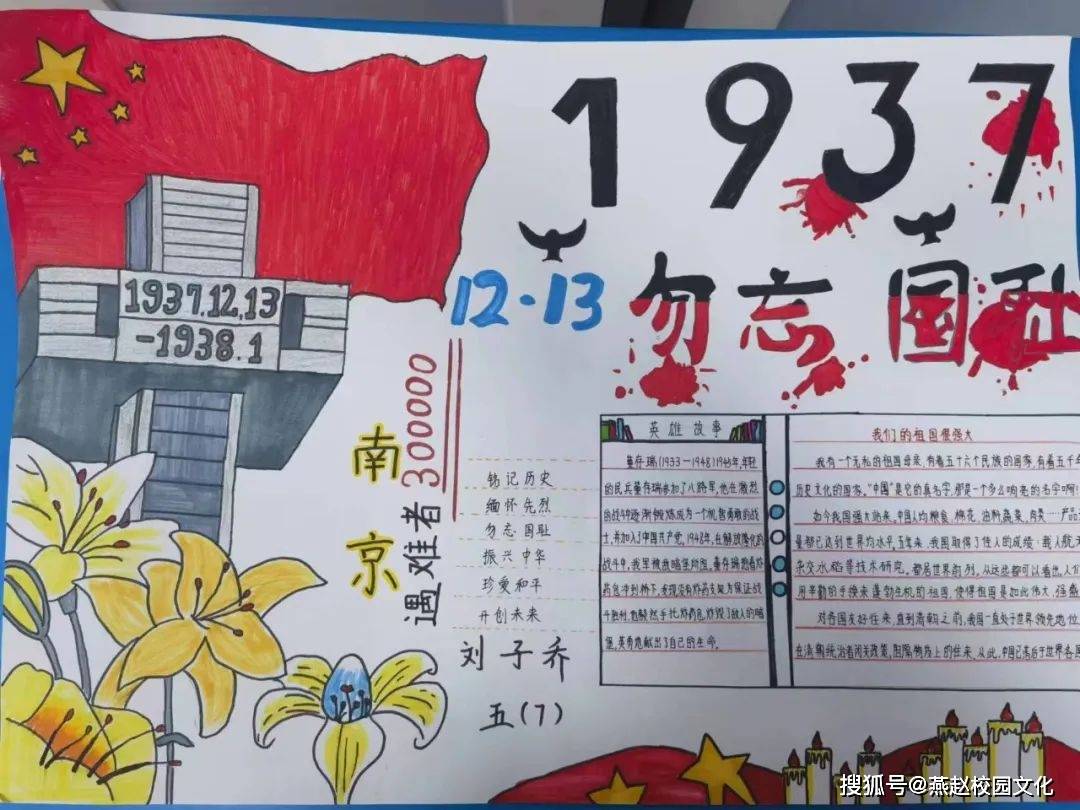 1937
12·13
勿忘国耻
1937.12.13
-1938.1
南京
遇难者300000
铭记历史
缅怀先烈
勿忘国耻
振兴中华
珍爱和平
开创未来
刘子乔
五(7)
英雄故事
董存瑞(1933—1948)1945年,年轻
的民兵董存瑞参加了八路军,他在激烈
的战斗中逐渐锻炼成为一个机智勇敢的战
士,并加入了中国共产党,1948年,在解放隆化的
战斗中,我军被敌暗堡所阻,董存瑞抱着炸
药包冲到桥下,发现没有炸药支架,为保证战
斗胜利,他毅然手托炸药包,炸毁了敌人的暗
堡,英勇地献出了自己的生命。
我们的祖国很强大
我有一个无私的祖国母亲,有着五十六个民族的国家,有着五千年
历史文化的国家。"中国"是它的真名字,那是一个多么响亮的名字啊!
如今我国强大起来,中国人均粮食、棉花、油料、蔬菜、肉类……产品
量都已达到世界均水平,五年来,我国取得了佳人的成绩:载人航天
杂交水稻等技术研究,都居世界前列,从这些都可以看出,人们
用辛勤的手换来蓬勃生机的祖国,使得祖国是如此伟大,强盛
对各国友好往来,直到清朝之前,我国一直处于世界领先地位
在清朝统治者闭关政策,阻隔海上的往来,从此,中国已落后于世界各国
搜狐号@燕赵校园文化